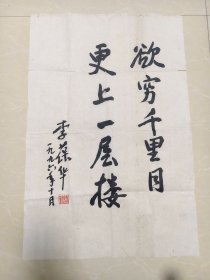 欲穷千里目
更上一层楼
李葆华
一九九六年十月